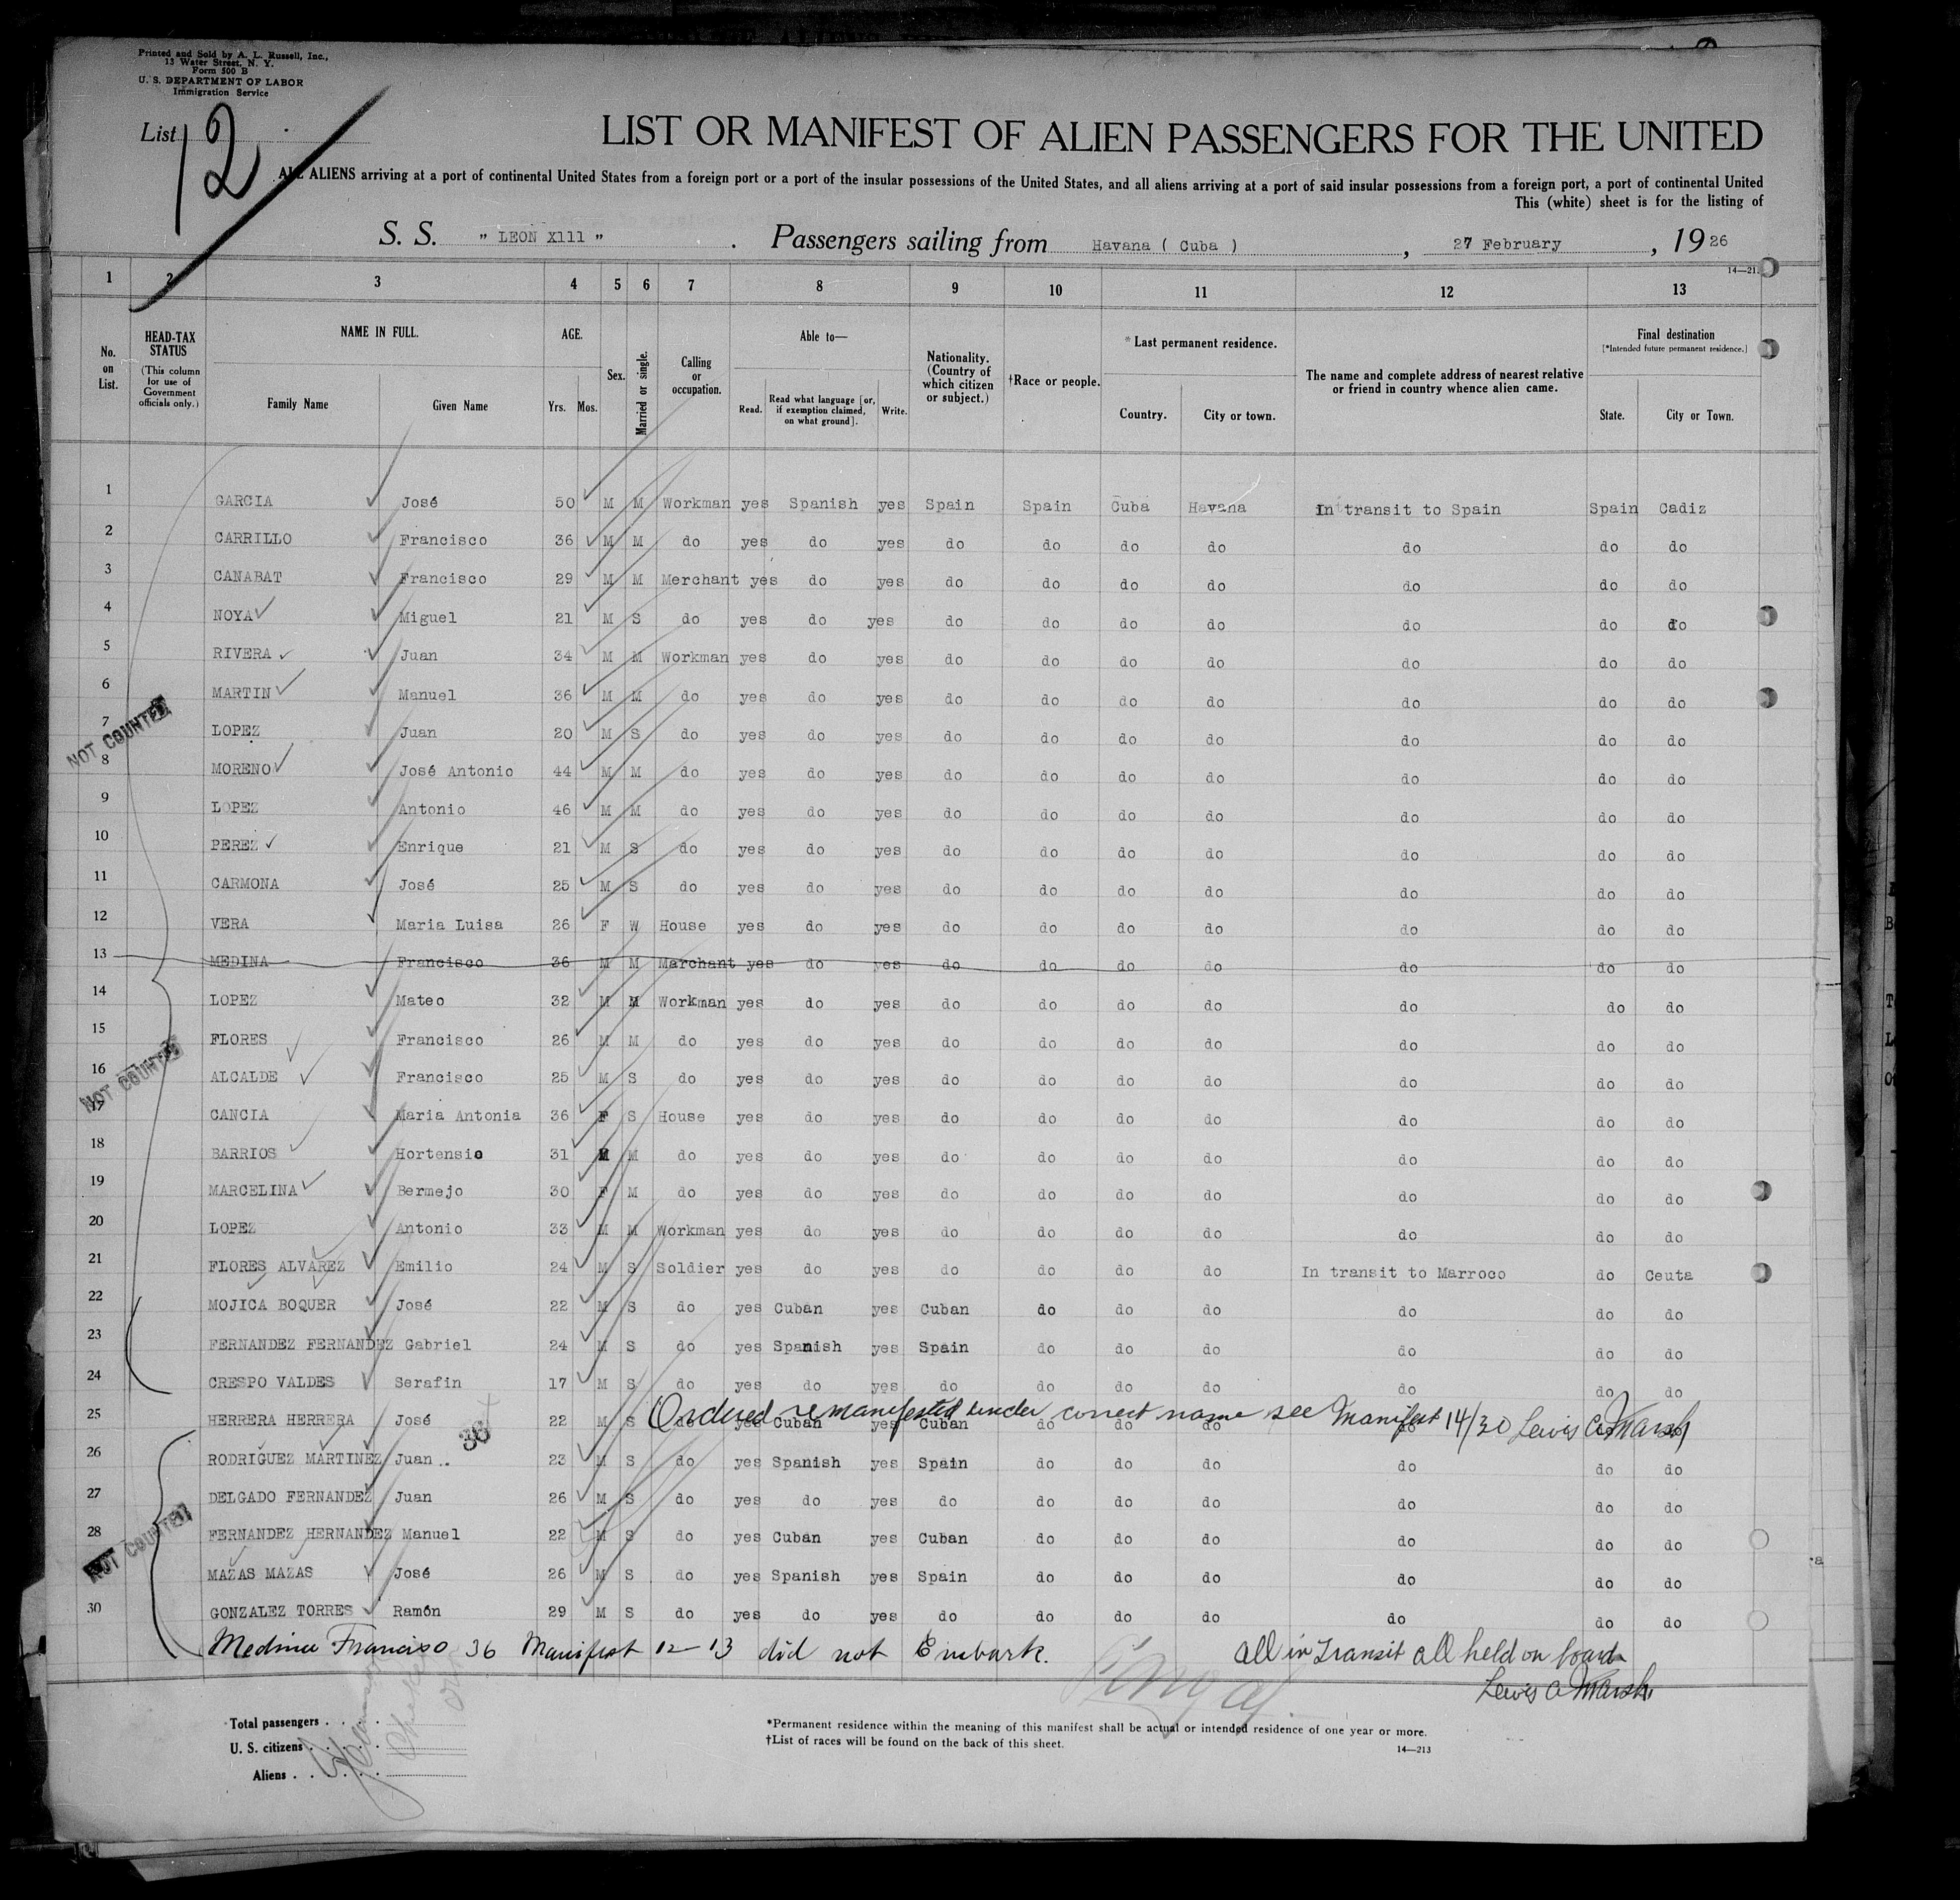 Printed and Sold by A. L. Russell, Inc.,
13 Water Street, N. Y.
Form 500 B
U. S. DEPARTMENT OF LABOR
Immigration Service
List 12
LIST OR MANIFEST OF ALIEN PASSENGERS FOR THE UNITED
ALL ALIENS arriving at a port of continental United States from a foreign port or a port of the insular possessions of the United States, and all aliens arriving at a port of said insular possessions from a foreign port, a port of continental United
This (white) sheet is for the listing of
S. S. " LEON X111 " . Passengers sailing from Havana ( Cuba ) , 27 February , 1926
14—21
1 2 3 4 5 6 7 8 9 10 11 12 13
No. on List. HEAD-TAX STATUS (This column for use of Government officials only.) NAME IN FULL. Family Name Given Name AGE. Yrs. Mos. Sex. Married or single. Calling or occupation. Able to— Read. Read what language [or, if exemption claimed, on what ground]. Write. Nationality. (Country of which citizen or subject.) †Race or people. *Last permanent residence. Country. City or town. The name and complete address of nearest relative or friend in country whence alien came. Final destination [*Intended future permanent residence.] State. City or Town.
1 GARCIA José 50 M M Workman yes Spanish yes Spain Spain Cuba Havana In transit to Spain Spain Cadiz
2 CARRILLO Francisco 36 M M do yes do yes do do do do do do do
3 CANABAT Francisco 29 M M Merchant yes do yes do do do do do do do
4 NOYA Miguel 21 M S do yes do yes do do do do do do do
5 RIVERA Juan 34 M M Workman yes do yes do do do do do do do
6 MARTIN Manuel 36 M M do yes do yes do do do do do do do
NOT COUNTED
7 LOPEZ Juan 20 M S do yes do yes do do do do do do do
8 MORENO José Antonio 44 M M do yes do yes do do do do do do do
9 LOPEZ Antonio 46 M M do yes do yes do do do do do do do
10 PEREZ Enrique 21 M S do yes do yes do do do do do do do
11 CARMONA José 25 M S do yes do yes do do do do do do do
12 VERA Maria Luisa 26 F W House yes do yes do do do do do do do
13 MEDINA Francisco 36 M M Marchant yes do yes do do do do do do do
14 LOPEZ Mateo 32 M M Workman yes do yes do do do do do do do
15 FLORES Francisco 26 M M do yes do yes do do do do do do do
16 ALCALDE Francisco 25 M S do yes do yes do do do do do do do
NOT COUNTED
17 CANCIA Maria Antonia 36 F S House yes do yes do do do do do do do
18 BARRIOS Hortensio 31 M M do yes do yes do do do do do do do
19 MARCELINA Bermejo 30 F M do yes do yes do do do do do do do
20 LOPEZ Antonio 33 M M Workman yes do yes do do do do do do do
21 FLORES ALVAREZ Emilio 24 M S Soldier yes do yes do do do do In transit to Marroco do Ceuta
22 MOJICA BOQUER José 22 M S do yes Cuban yes Cuban do do do do do do
23 FERNANDEZ FERNANDEZ Gabriel 24 M S do yes Spanish yes Spain do do do do do do
24 CRESPO VALDES Serafin 17 M S do yes do yes do do do do do do do
Ordered remanifested under correct name see Manifest 14/30 Lewis C. Marsh
25 HERRERA HERRERA José 22 M S do yes Cuban yes Cuban do do do do do do
38
26 RODRIGUEZ MARTINEZ Juan .. 23 M S do yes Spanish yes Spain do do do do do do
27 DELGADO FERNANDEZ Juan 26 M S do yes do yes do do do do do do do
NOT COUNTED
28 FERNANDEZ HERNANDEZ Manuel 22 M S do yes Cuban yes Cuban do do do do do do
29 MAZAS MAZAS José 26 M S do yes Spanish yes Spain do do do do do do
30 GONZALEZ TORRES Ramón 29 M S do yes do yes do do do do do do do
Medina Francisco 36 Manifest 12-13 did not Embark. all in Transit all held on board
Lewis C Marsh
Total passengers . . . .
U. S. citizens . . . . .
Aliens . . . . . .
*Permanent residence within the meaning of this manifest shall be actual or intended residence of one year or more.
†List of races will be found on the back of this sheet.
14—213